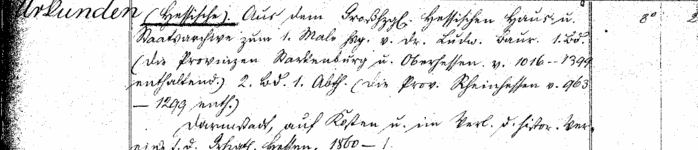 Urkunden (Hessische) Aus dem Großhzgl. Hessischen Haus- u. 8°
Staatsarchive zum 1. Male hsg. v. Dr. Ludw. Baur. 1. Bd.
(Die Provinzen Starkenburg u. Oberhessen v. 1016–1399
enthaltend.) 2. Bd. 1. Abth. (Die Prov. Rheinhessen v. 963
– 1299 enth.)
Darmstadt, auf Kosten u. im Verl. d. histor. Ver-
eins f. d. Hessen, 1860 –